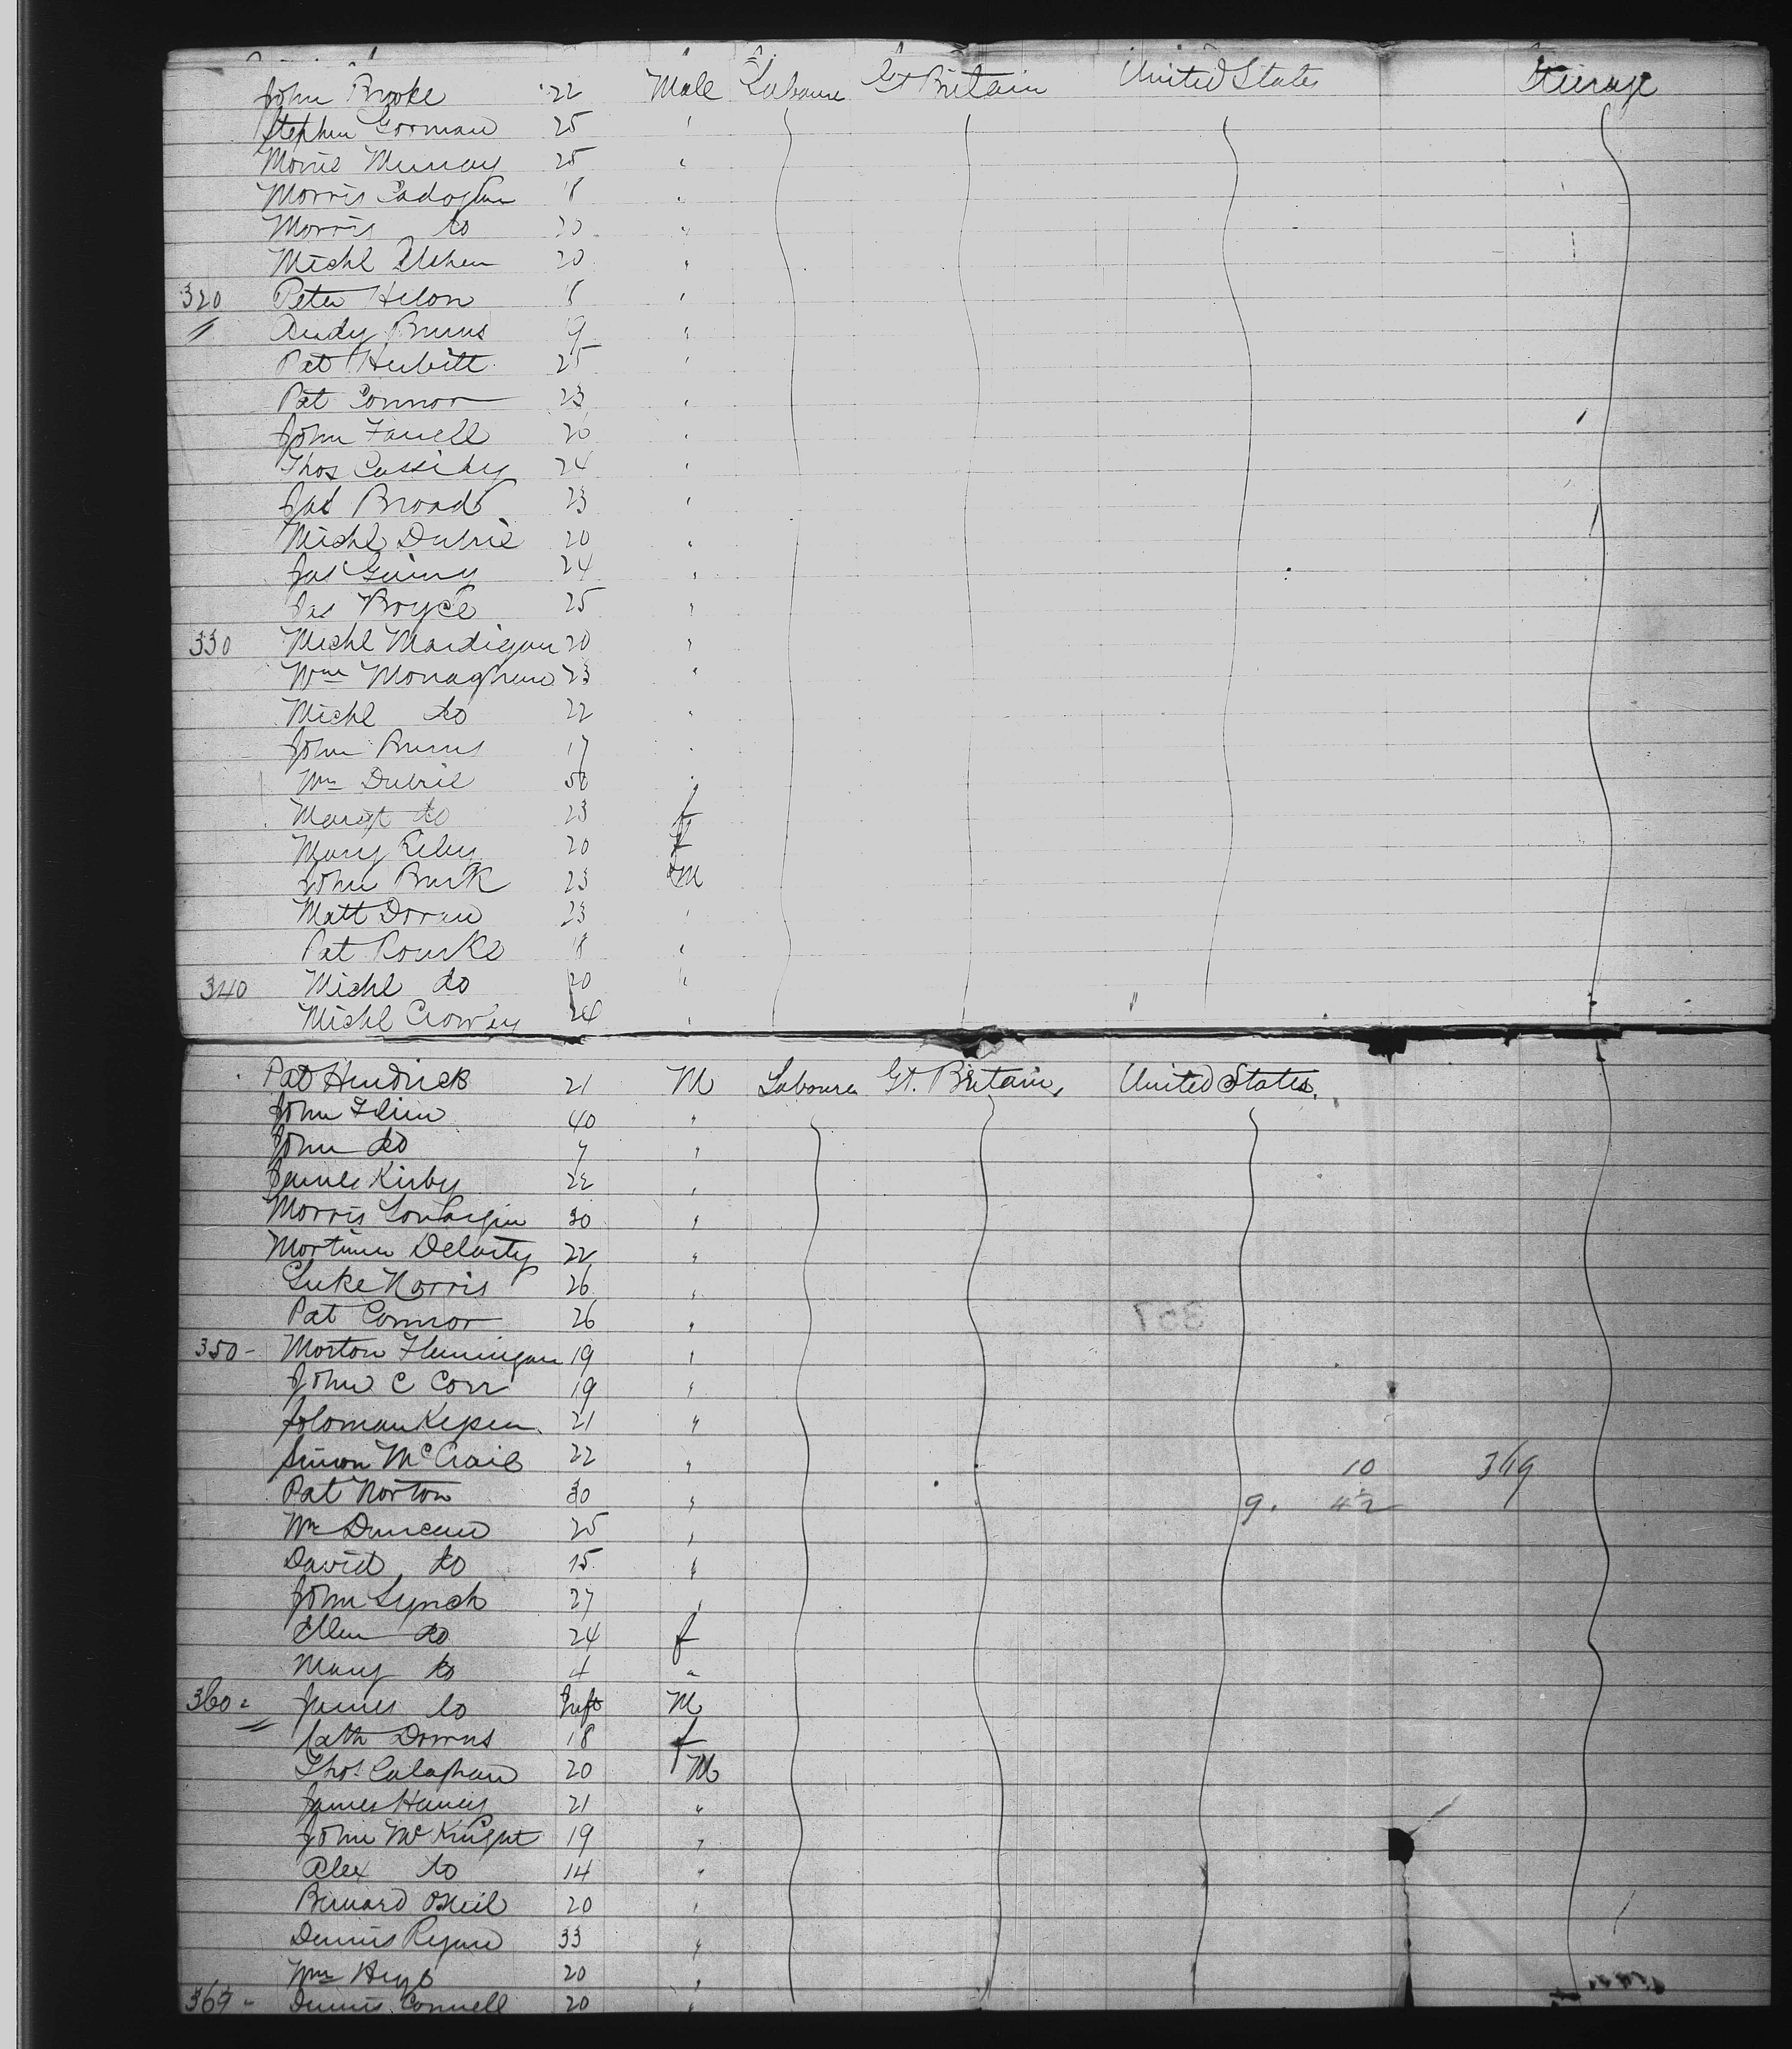 John Brooke 22 Male Laboure Gt Britain United States Steerage
Stephen Gorman 25 "
Morris Murray 25 "
Morris Cadogan 18 "
Morris do 20 "
Michl 20 "
320 Peter 18 "
Andy Burns 19 "
Pat 25 "
Pat Connor 23 "
John Farrell 20 "
Thos Cassidy 24 "
Jas Broad 23 "
Michl 20 "
Jas 24 "
Jas Boyce 25 "
330 Michl Mardigan 20 "
Wm Monaghan 23 "
Michl do 22 "
John Burns 17 "
Wm 50 "
Margt do 23 f
Mary Riley 20 f
John Burk 23 M
Matt Doran 23 "
Pat Rourke 18 "
340 Michl do 20 "
Michl Crowley 24 "
Pat Hendrick 21 M Laboure Gt. Britain, United States.
John Flinn 40 "
John do 7 "
James Kirby 22 "
Morris 30 "
Mortimer 22 "
Luke Norris 26 "
Pat Connor 26 "
357
350- Morton 19 "
John C Corr 19 "
Soloman 21 "
Simon McCraib 22 " 10 369
Pat Norton 30 " 9. 42
Wm Duncan 25 "
David do 15 "
John Lynch 27 "
Ellen do 24 f
Mary do 4 "
360 James do Inft M
Cath Downs 18 f
Thos Calaghan 20 M
James Haney 21 "
John McKnight 19 "
Alex do 14 "
Bernard ONeil 20 "
Dennis Ryan 33 "
Wm 20 "
369- Dennis Connell 20 "